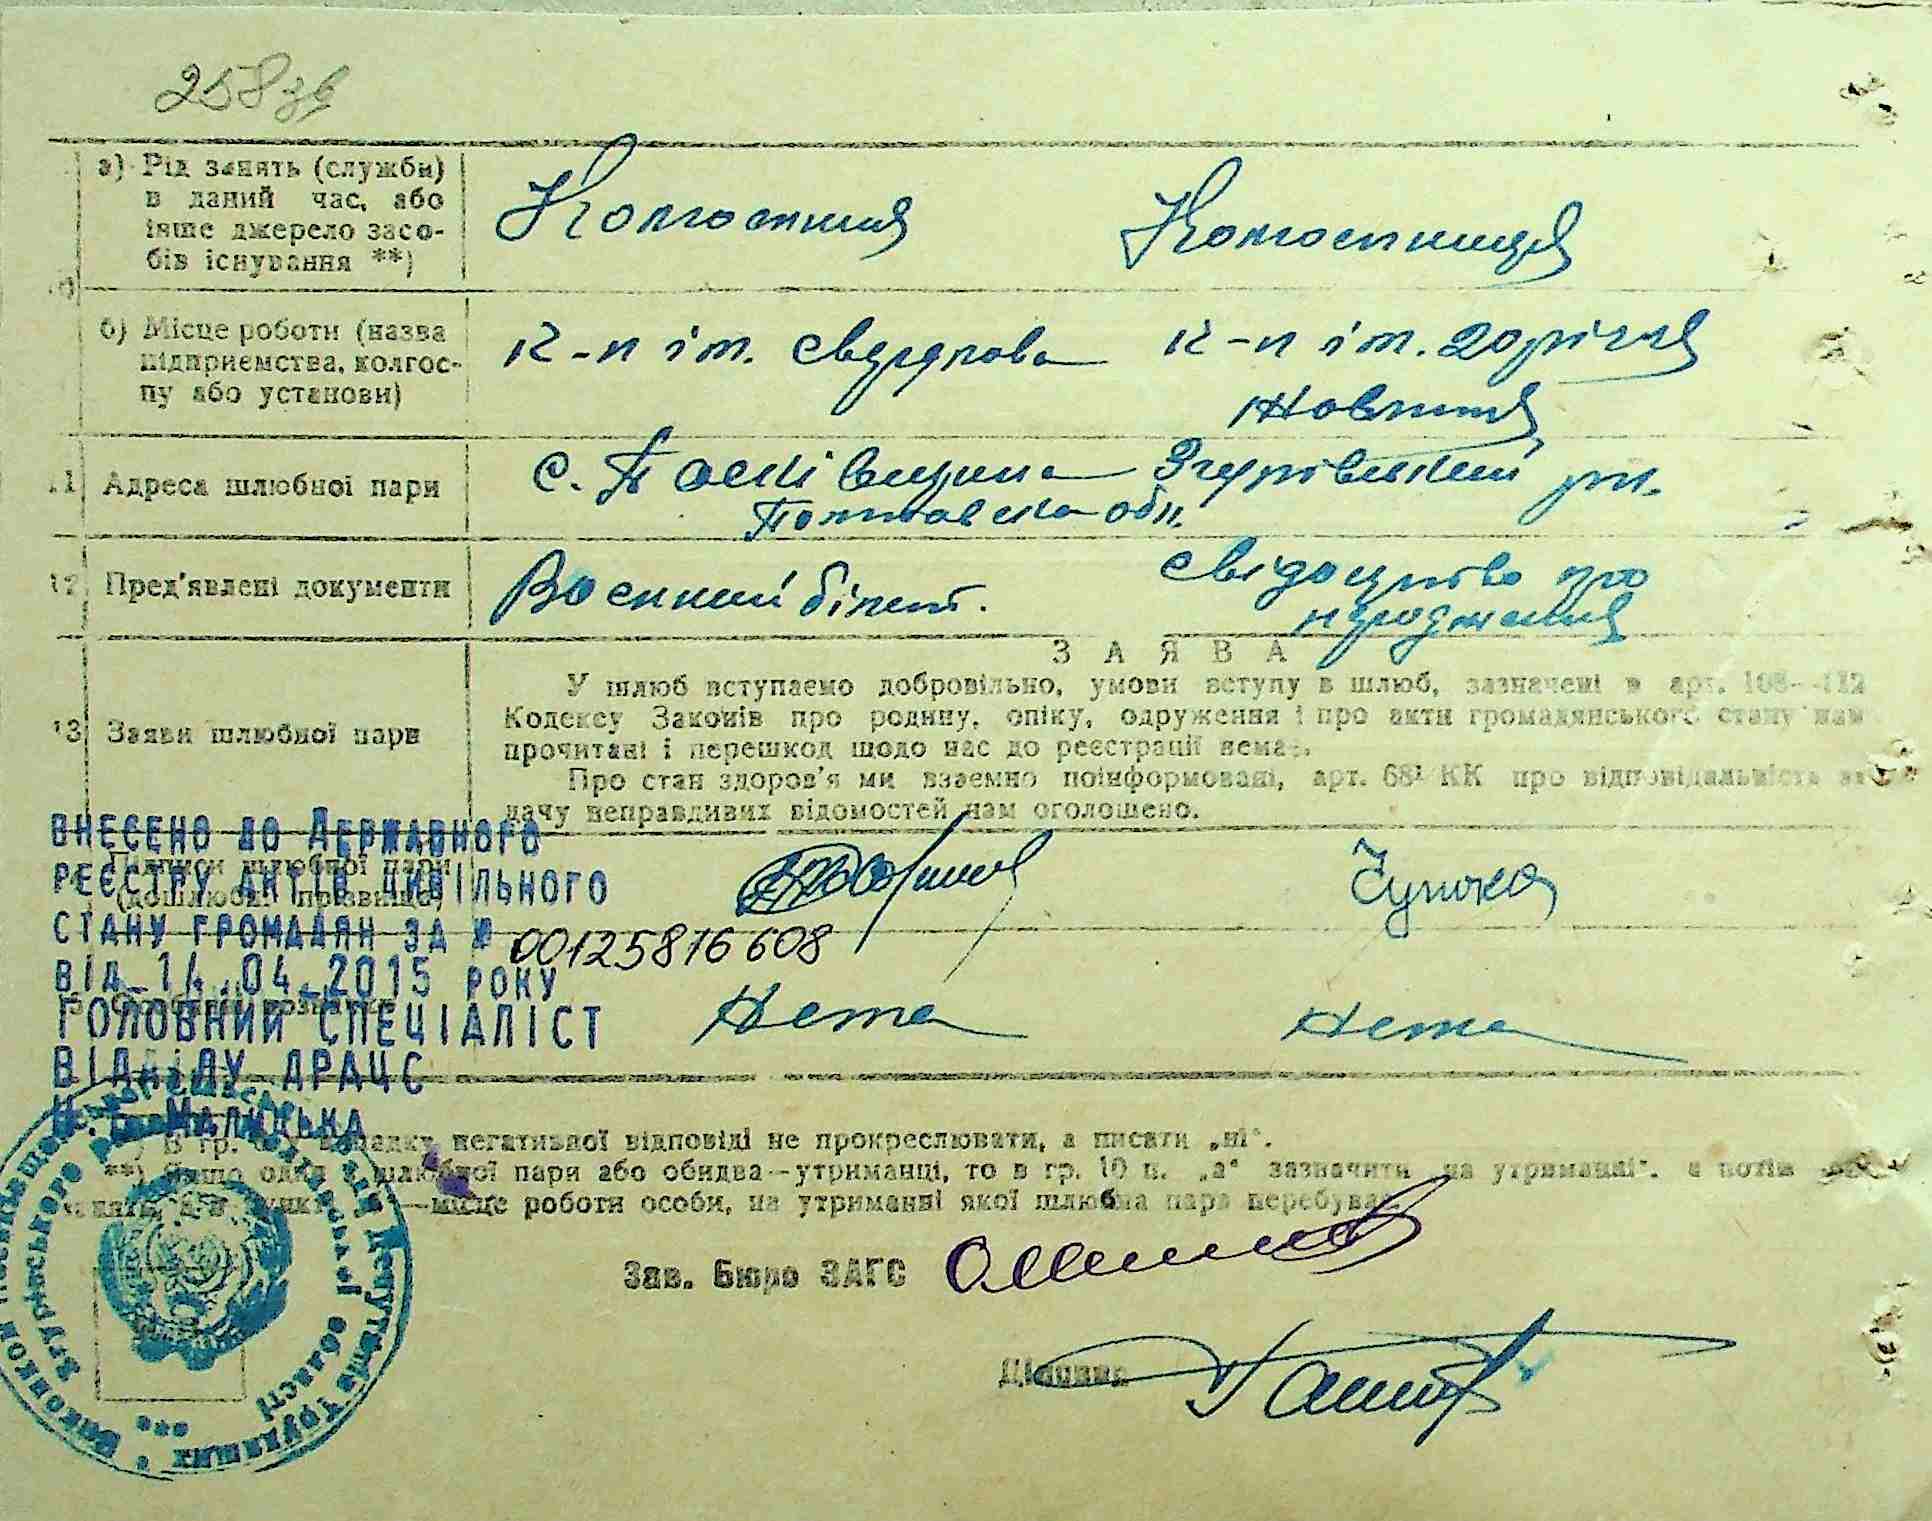 258 зв
а) Рід занять (служби) в даний час, або інше джерело засобів існування **)
Колгоспник
Колгоспниця
10
б) Місце роботи (назва підприємства, колгоспу або установи)
к-п ім. Свердлова
к-п ім. 20 річчя
Жовтня
11 Адреса шлюбної пари
с. Пасківщина Згурівський рн.
Полтавська обл.
12 Пред'явлені документи
Воєнний білет.
свідоцтво про
народження
ЗАЯВА
13 Заяви шлюбної пари
У шлюб вступаємо добровільно, умови вступу в шлюб, зазначені в арт. 108—112
Кодексу Законів про родину, опіку, одруження і про акти громадянського стану нам
прочитані і перешкод щодо нас до реєстрації немає.
Про стан здоров'я ми взаємно поінформовані, арт. 68¹ КК про відповідальність за по-
дачу неправдивих відомостей нам оголошено.
Підписи шлюбної пари (дошлюбні прізвища)
Чупка
ВНЕСЕНО ДО ДЕРЖАВНОГО
РЕЄСТРУ АКТІВ ЦИВІЛЬНОГО
СТАНУ ГРОМАДЯН ЗА № 00125816608
ВІД 14.04.2015 РОКУ
ГОЛОВНИЙ СПЕЦІАЛІСТ
ВІДДІЛУ ДРАЦС
Нема
Нема
В гр. негативної відповіді не прокреслювати, а писати „ні“.
**) Якщо один з шлюбної пари або обидва—утриманці, то в гр. 10 п. „а“ зазначити „на утриманні“, а потім
—місце роботи особи, на утриманні якої шлюбна пара перебуває.
Зав. Бюро ЗАГС
Діловод
Виконком
Згурівського
Депутатів Трудящих
області